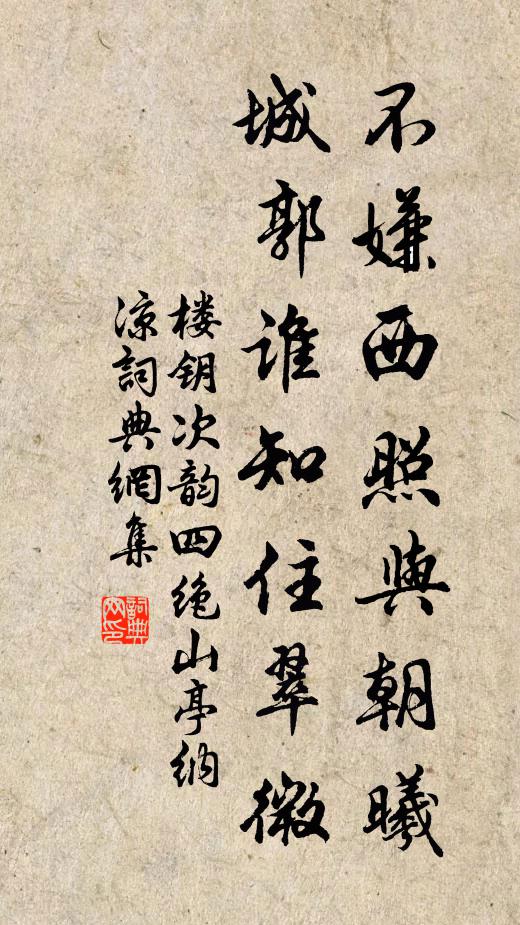 不嫌西照與朝曦
城郭谁知住翠微
楼钥次韵四绝山亭纳
凉詞典網集
詞典网印